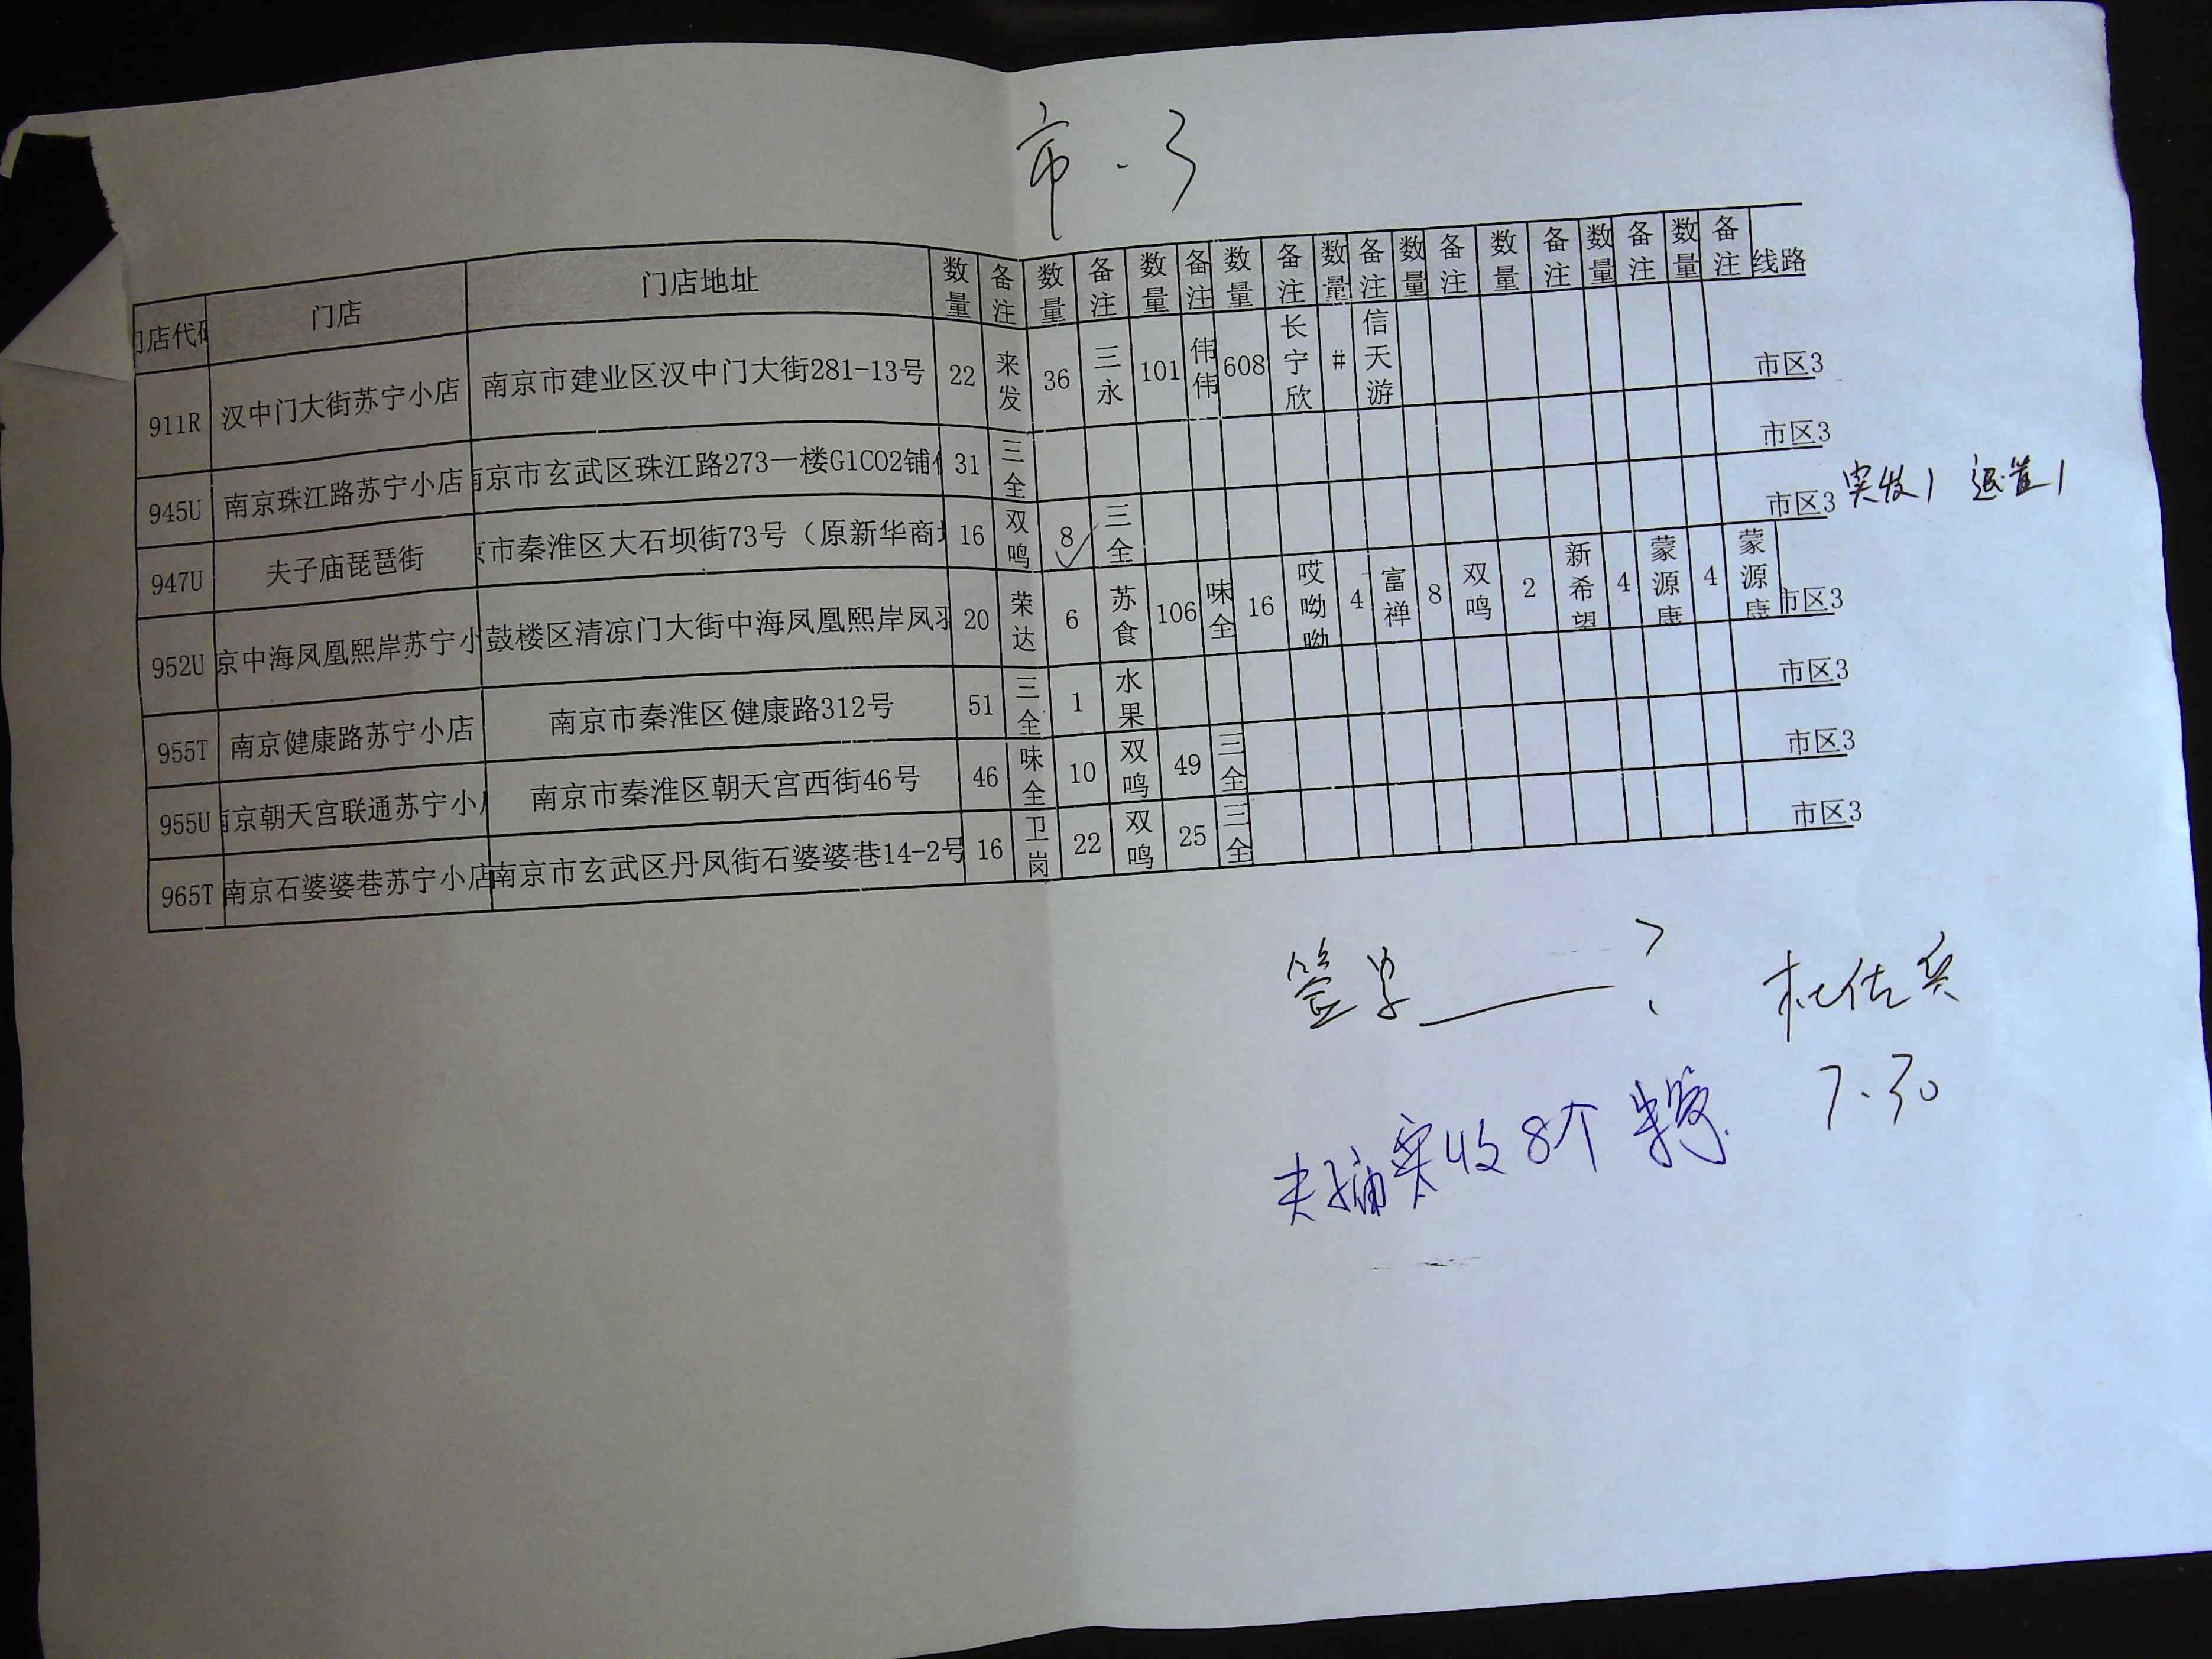 市.3
门店代码 门店 门店地址 数量 备注 数量 备注 数量 备注 数量 备注 数量 备注 数量 备注 数量 备注 数量 备注 数量 备注 线路
911R 汉中门大街苏宁小店 南京市建业区汉中门大街281-13号 22 来发 36 三永 101 伟伟 608 长宁欣 # 信天游 市区3
945U 南京珠江路苏宁小店 南京市玄武区珠江路273一楼G1C02铺 31 三全 市区3
947U 夫子庙琵琶街 京市秦淮区大石坝街73号（原新华商 16 双鸣 8 三全 市区3 实收1 退道1
952U 京中海凤凰熙岸苏宁小 鼓楼区清凉门大街中海凤凰熙岸凤羽 20 荣达 6 苏食 106 味全 16 哎呦呦 4 富禅 8 双鸣 2 新希望 4 蒙源康 4 蒙源康 市区3
955T 南京健康路苏宁小店 南京市秦淮区健康路312号 51 三全 1 水果 市区3
955U 南京朝天宫联通苏宁小 南京市秦淮区朝天宫西街46号 46 味全 10 双鸣 49 三全 市区3
965T 南京石婆婆巷苏宁小店 南京市玄武区丹凤街石婆婆巷14-2号 16 卫岗 22 双鸣 25 三全 市区3
签字 ？ 杜佐兵
7.30
夫子庙实收8个